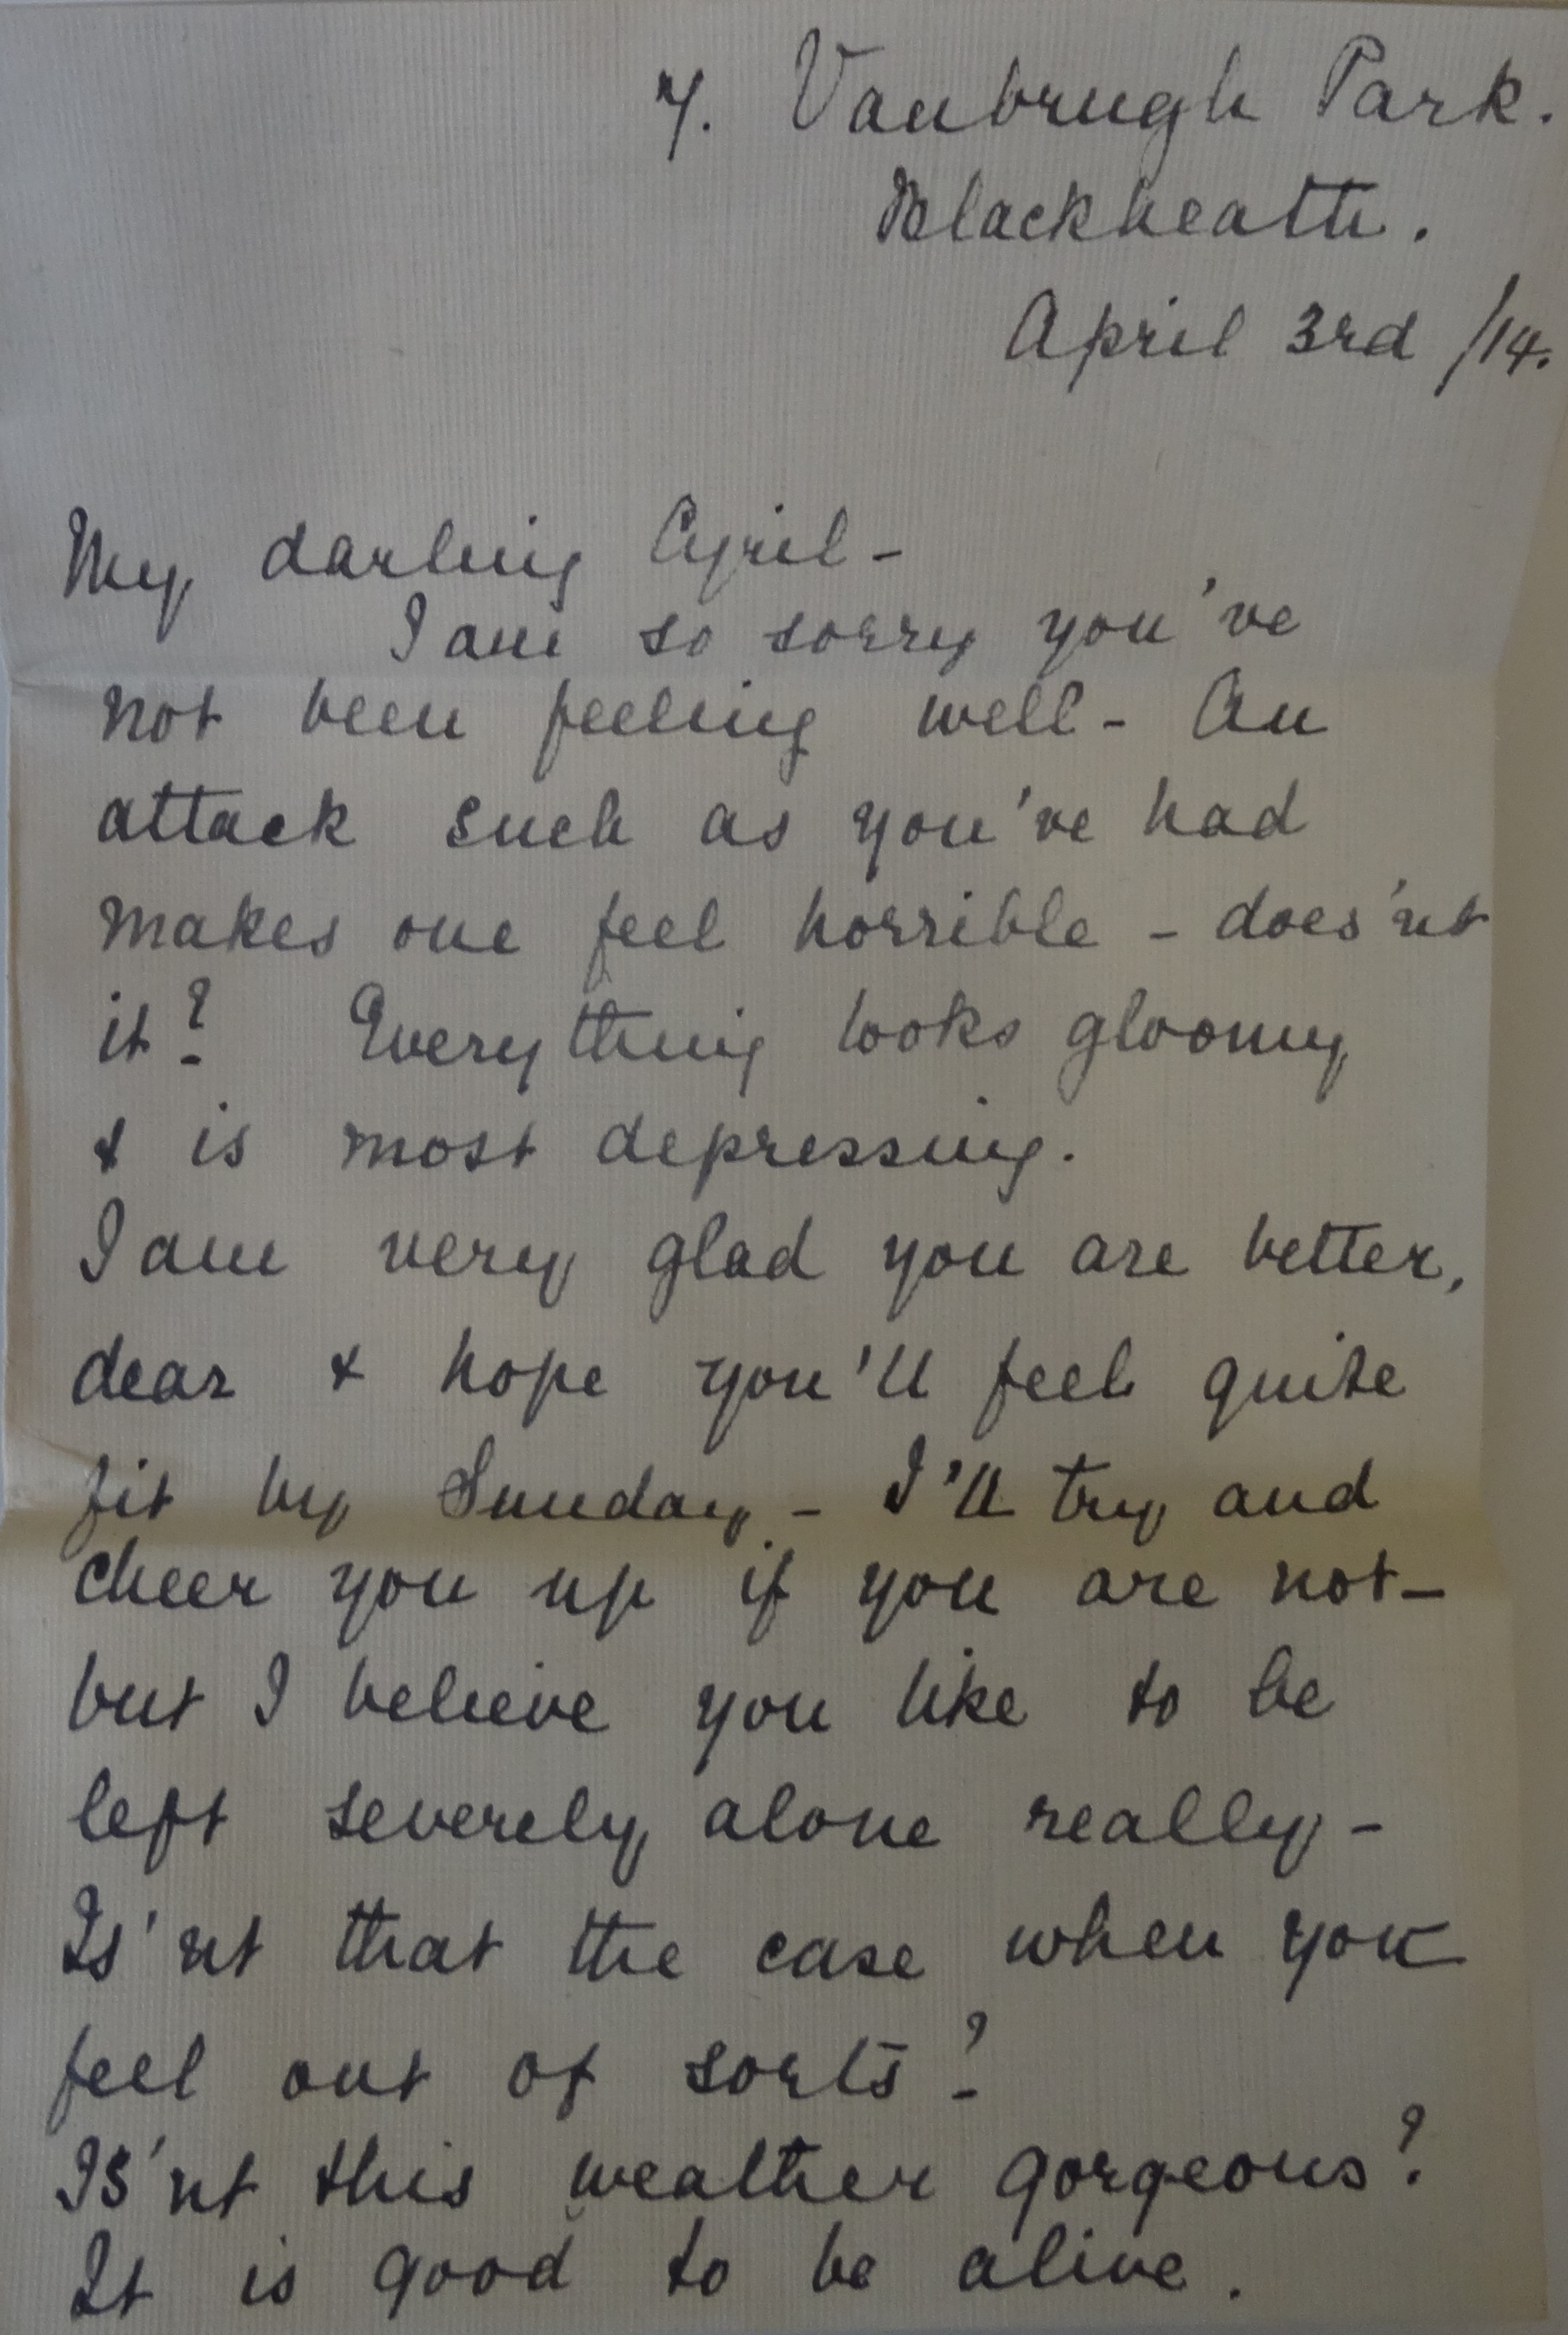 7. Vanbrugh Park.
Blackheath.
April 3rd /14.
My darling Cyril -
I am so sorry you've
not been feeling well - An
attack such as you've had
makes one feel horrible - does'nt
it? Everything looks gloomy
& is most depressing.
I am very glad you are better,
dear & hope you'll feel quite
fit by Sunday - I'll try and
cheer you up if you are not -
but I believe you like to be
left severely alone really -
Is'nt that the case when you
feel out of sorts?
Is'nt this weather gorgeous?
It is good to be alive.